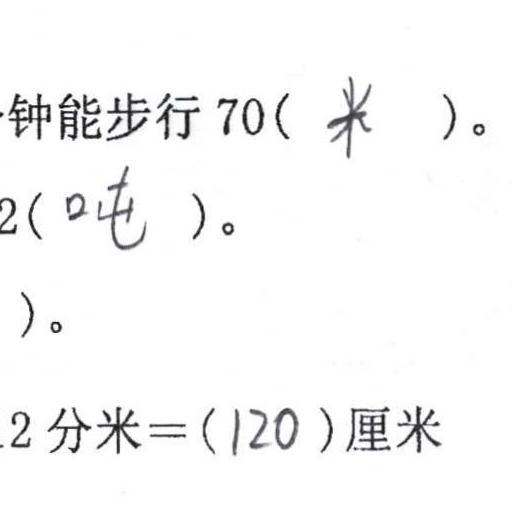 钟能步行70(米)。
2(吨)。
)。
12分米=(120)厘米